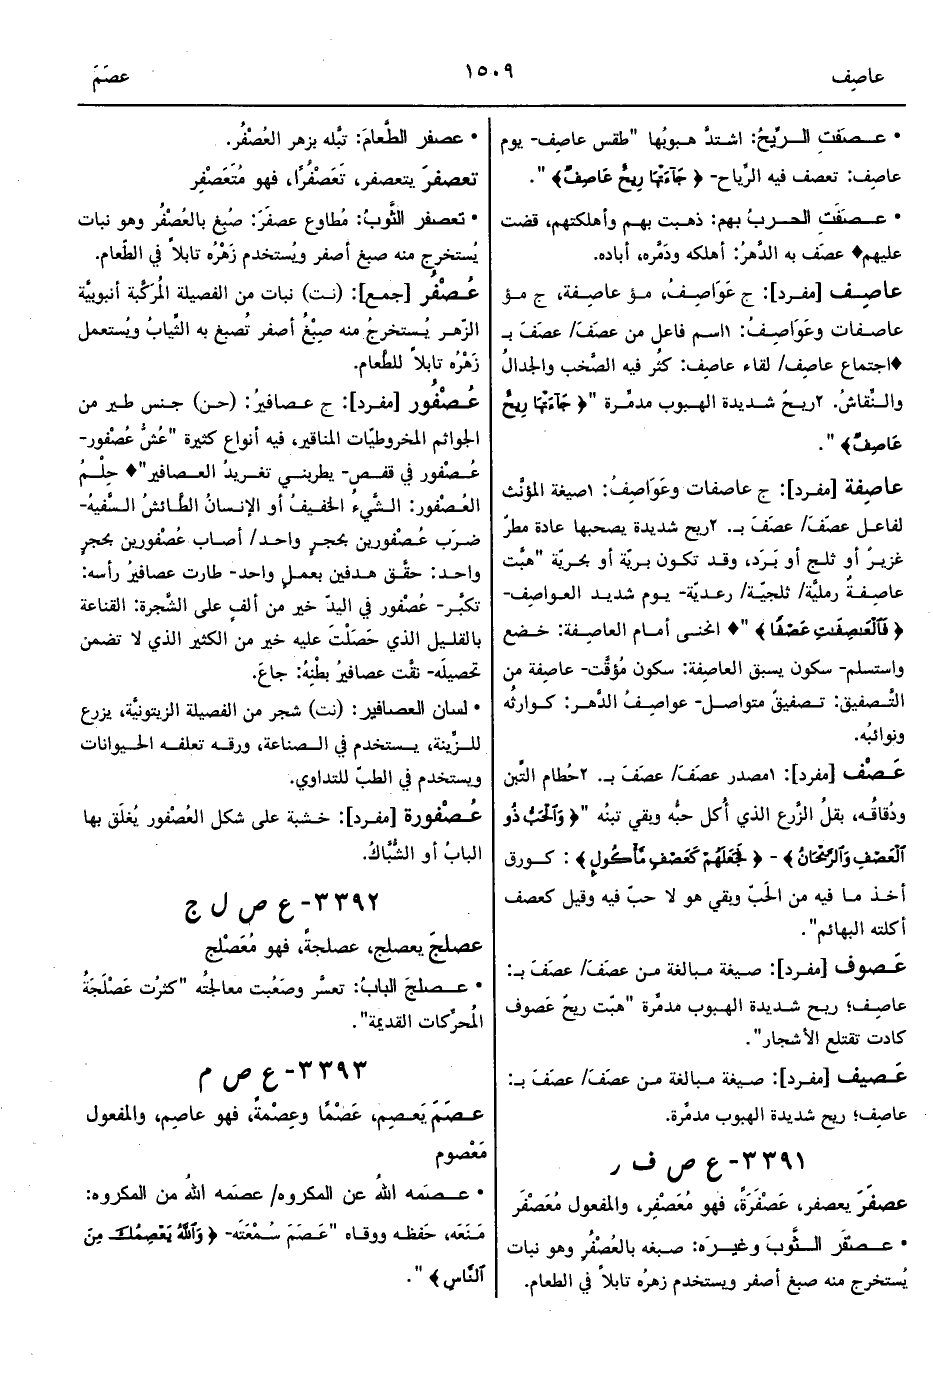 عاصِف
١٥٠٩
عصَمَ
• عـصـَفَتِ الـرِّيحُ: اشتدَّ هـبوبُها "طقس عاصِف- يوم
عاصِف: تعصف فيه الرِّياح- ﴿ جَآءَتْهَا رِيحٌ عَاصِفٌ﴾ ".
• عـصـَفَت الحـربُ بهم: ذهبت بهم وأهلكتهم، قضت
عليهم♦ عصَف به الدَّهرُ: أهلكه ودَمَّره، أباده.
عاصِف [مفرد]: ج عَوَاصِفُ، مؤ عاصِفة، ج مؤ
عاصفات وعَوَاصِفُ: ١اسم فاعل من عصَفَ/ عصَفَ بـ
♦اجتماع عاصِف/ لقاء عاصِف: كثُر فيه الصَّخب والجدالُ
والنِّقاشُ. ٢ريـح شـديدة الهـبوب مدمِّرة "﴿ جَآءَتْهَا رِيحٌ
عَاصِفٌ﴾ ".
عاصِفة [مفرد]: ج عاصفات وعَوَاصِفُ: ١صيغة المؤنَّث
لفاعل عصَفَ/ عصَفَ بـ. ٢ريح شديدة يصحبها عادة مطرٌ
غزيرٌ أو ثلج أو بَرَد، وقد تكون بريّة أو بحريّة "هبَّت
عاصِفةٌ رمليَّة/ ثلجيّة/ رعديّة- يـوم شديد العواصِف-
﴿ فَٱلْعَٰصِفَٰتِ عَصْفًا ﴾ "♦ انحنى أمام العاصفة: خـضع
واستسلم- سكون يسبق العاصفة: سكون مُؤقَّت- عاصفة من
التَّصفيق: تـصفيقٌ متواصـل- عواصِفُ الدَّهر: كـوارثُه
ونوائبُه.
عَـصْف [مفرد]: ١مصدر عصَفَ/ عصَفَ بـ. ٢حُطام التِّبن
ودُقاقُه، بقلُ الزَّرع الذي أُكل حبُّه وبقي تبنُه "﴿ وَٱلْحَبُّ ذُو
ٱلْعَصْفِ وَٱلرَّيْحَانُ﴾ - ﴿ فَجَعَلَهُمْ كَعَصْفٍ مَّأْكُولٍ﴾ : كـورق
أخـذ مـا فيه من الحَبّ وبقي هو لا حبّ فيه وقيل كعصف
أكلته البهائم".
عَـصوف [مفرد]: صـيغة مـبالغة مـن عصَفَ/ عصَفَ بـ:
عاصِف؛ ريـح شـديدة الهـبوب مدمِّرة "هبَّت ريحٌ عَصوف
كادت تقتلع الأشجار".
عَـصِيف [مفرد]: صـيغة مـبالغة مـن عصَفَ/ عصَفَ بـ:
عاصِف؛ ريح شديدة الهبوب مدمِّرة.
٣٣٩١- ع ص ف ر
عصفَرَ يعصفر، عَصْفَرَةً، فهو مُعَصْفِر، والمفعول مُعَصْفَر
• عـصفَر الـثَّوبَ وغيرَه: صبغه بالعُصْفُرِ وهو نبات
يُستخرج منه صبغ أصفر ويستخدم زهرُه تابلاً في الطعام.
• عصفر الطَّعامَ: تبَّله بزهر العُصْفُر.
تعصفرَ يتعصفر، تَعَصْفُرًا، فهو مُتَعَصْفِر
• تعصفر الثَّوبُ: مُطاوع عصفَرَ: صُبغ بالعُصْفُر وهو نبات
يُستخرج منه صبغ أصفر ويُستخدم زَهْرُه تابلاً في الطّعام.
عُـصْفُر [جمع]: (نت) نبات من الفصيلة المُركَّبة أنبوبيَّة
الزّهر يُستخرجُ منه صِبْغٌ أصفر تُصبغ به الثِّيابُ ويُستعمل
زَهْرُه تابلاً للطَّعام.
عُـصْفُور [مفرد]: ج عـصافيرُ: (حـن) جـنس طيرٍ من
الجواثم المخروطيّات المناقير، فيه أنواع كثيرة "عُشُّ عُصْفور-
عُـصْفور في قفـص- يطربني تغـريدُ العـصافير"♦ حِلْـمُ
العُصْفور: الشَّيءُ الخفيفُ أو الإنسانُ الطَّائشُ السَّفيهُ-
ضـرَب عُـصْفورين بحجرٍ واحد/ أصاب عُصْفورين بحجرٍ
واحد: حقَّـق هـدفين بعملٍ واحد- طارت عصافيرُ رأسِه:
تكبَّـر- عُصْفور في اليدّ خير من ألفٍ على الشَّجرة: القناعة
بالقليل الذي حَصَلْتَ عليه خير من الكثير الذي لا تضمن
تحصيلَه- نقَّت عصافيرُ بطْنِهُ: جاعَ.
• لسان العصافير: (نت) شجر من الفصيلة الزيتونيَّة، يزرع
للـزِّينة، يـستخدم في الـصناعة، ورقـه تعلفـه الحـيوانات
ويستخدم في الطبّ للتداوي.
عُـصْفُورة [مفرد]: خـشبة على شكل العُصْفور يُغلَق بها
البابُ أو الشُّبَّاكُ.
٣٣٩٢- ع ص ل ج
عصلجَ يعصلج، عصلجةً، فهو مُعَصْلِج
• عـصلجَ البابُ: تعسَّر وصَعُبت معالجتُه "كثرت عَصْلَجَةُ
المُحرِّكات القديمة".
٣٣٩٣- ع ص م
عـصَمَ يَعـصِم، عَصْمًا وعِصْمةً، فهو عاصِم، والمفعول
مَعْصوم
• عـصَمه اللهُ عن المكروه/ عصَمه اللهُ من المكروه:
مَـنَعَه، حَفظـه ووقـاه "عَـصَمَ سُـمْعَتَه- ﴿ وَٱللَّهُ يَعْصِمُكَ مِنَ
ٱلنَّاسِ﴾ ".